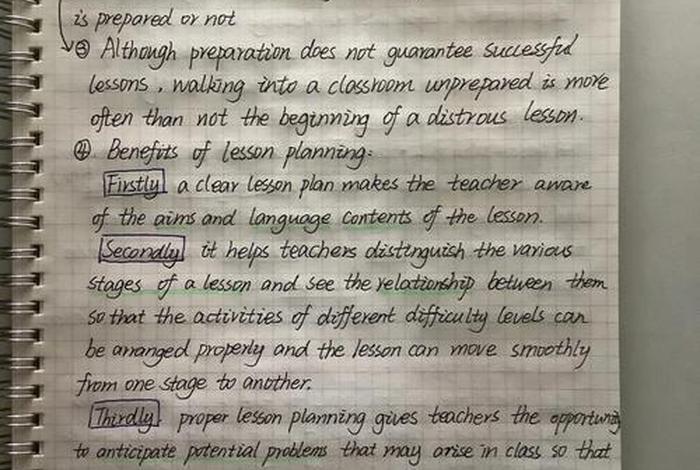 is prepared or not
③ Although preparation does not guarantee successful
lessons, walking into a classroom unprepared is more
often than not the beginning of a distrous lesson.
④ Benefits of lesson planning:
Firstly a clear lesson plan makes the teacher aware
of the aims and language contents of the lesson.
Secondly it helps teachers distinguish the various
stages of a lesson and see the relationship between them
so that the activities of different difficulty levels can
be arranged properly and the lesson can move smoothly
from one stage to another.
Thirdly proper lesson planning gives teachers the opportunity
to anticipate potential problems that may arise in class so that